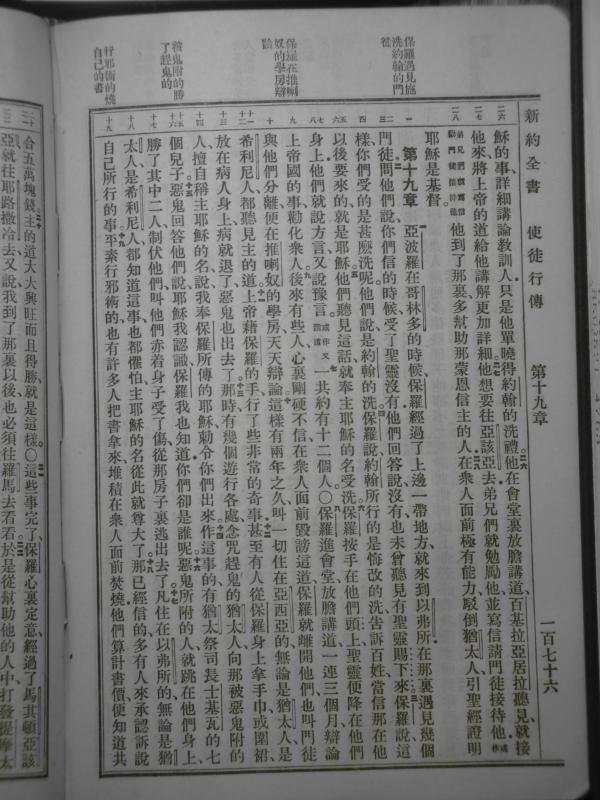 新約全書 使徒行傳 第十九章 一百七十六
保羅遇見施
洗約翰的門
徒
保羅在推喇
奴的學房辯
論
被鬼附的勝
了趕鬼的
行邪術的燒
自己的書
穌的事詳細講論教訓人、只是他單曉得約翰的洗禮、他在會堂裏放膽講道、百基拉亞居拉聽見、就接
他來將上帝的道給他講解更加詳細他想要往亞該亞去、弟兄們就勉勵他、並寫信請門徒接待他、或作
他到了那裏多幫助那蒙恩信主的人在衆人面前極有能力駁倒猶太人、引聖經證明
耶穌是基督
第十九章 亞波羅在哥林多的時候、保羅經過了上邊一帶地方、就來到以弗所在那裏遇見幾個
門徒問他們說、你們信的時候、受了聖靈沒有、他們回答說、沒有、也未曾聽見有聖靈賜下來、保羅說、這
樣、你們受的是甚麽洗呢、他們說、是約翰的洗、保羅說、約翰所行的是悔改的洗、告訴百姓、當信那在他
以後要來的就是耶穌、他們聽見這話、就奉主耶穌的名受洗、保羅按手在他們頭上、聖靈便降在他們
身上、他們就說方言、又說豫言、或作又講道 一共約有十二個人〇保羅進會堂放膽講道、一連三個月辯論
上帝國的事勸化衆人後來有些人心裏剛硬不信、在衆人面前毀謗這道、保羅就離開他們、也叫門徒
與他們分離、便在推喇奴的學房天天辯論、這樣有兩年之久、叫一切住在亞西亞的無論是猶太人、是
希利尼人、都聽見主的道、上帝藉保羅的手、行了些非常的奇事、甚至有人從保羅身上拿手巾或圍裙
放在病人身上、病就退了、惡鬼也出去了、那時有幾個遊行各處念咒趕鬼的猶太人、向那被惡鬼附的
人擅自稱主耶穌的名說、我奉保羅所傳的耶穌勅令你們出來、作這事的有猶太祭司長士基瓦的七
個兒子、惡鬼回答他們說、耶穌我認識、保羅我也知道、你們卻是誰呢、惡鬼所附的人就跳在他們身上、
勝了其中二人、制伏他們、叫他們赤着身子受了傷從那房子裏逃出去了、凡住在以弗所的無論是猶
太人、是希利尼人、都知道這事、也都懼怕、主耶穌的名從此就尊大了、那已經信的多有人來承認訴說
自己所行的事、平素行邪術的也有許多人把書拿來堆積在衆人面前焚燒、他們算計書價便知道共
合五萬塊錢、主的道大大興旺而且得勝就是這樣〇這些事完了、保羅心裏定意經過了馬其頓亞該
亞就往耶路撒冷去、又說、我到了那裏以後、也必須往羅馬去看看、於是從幫助他的人中打發提摩太